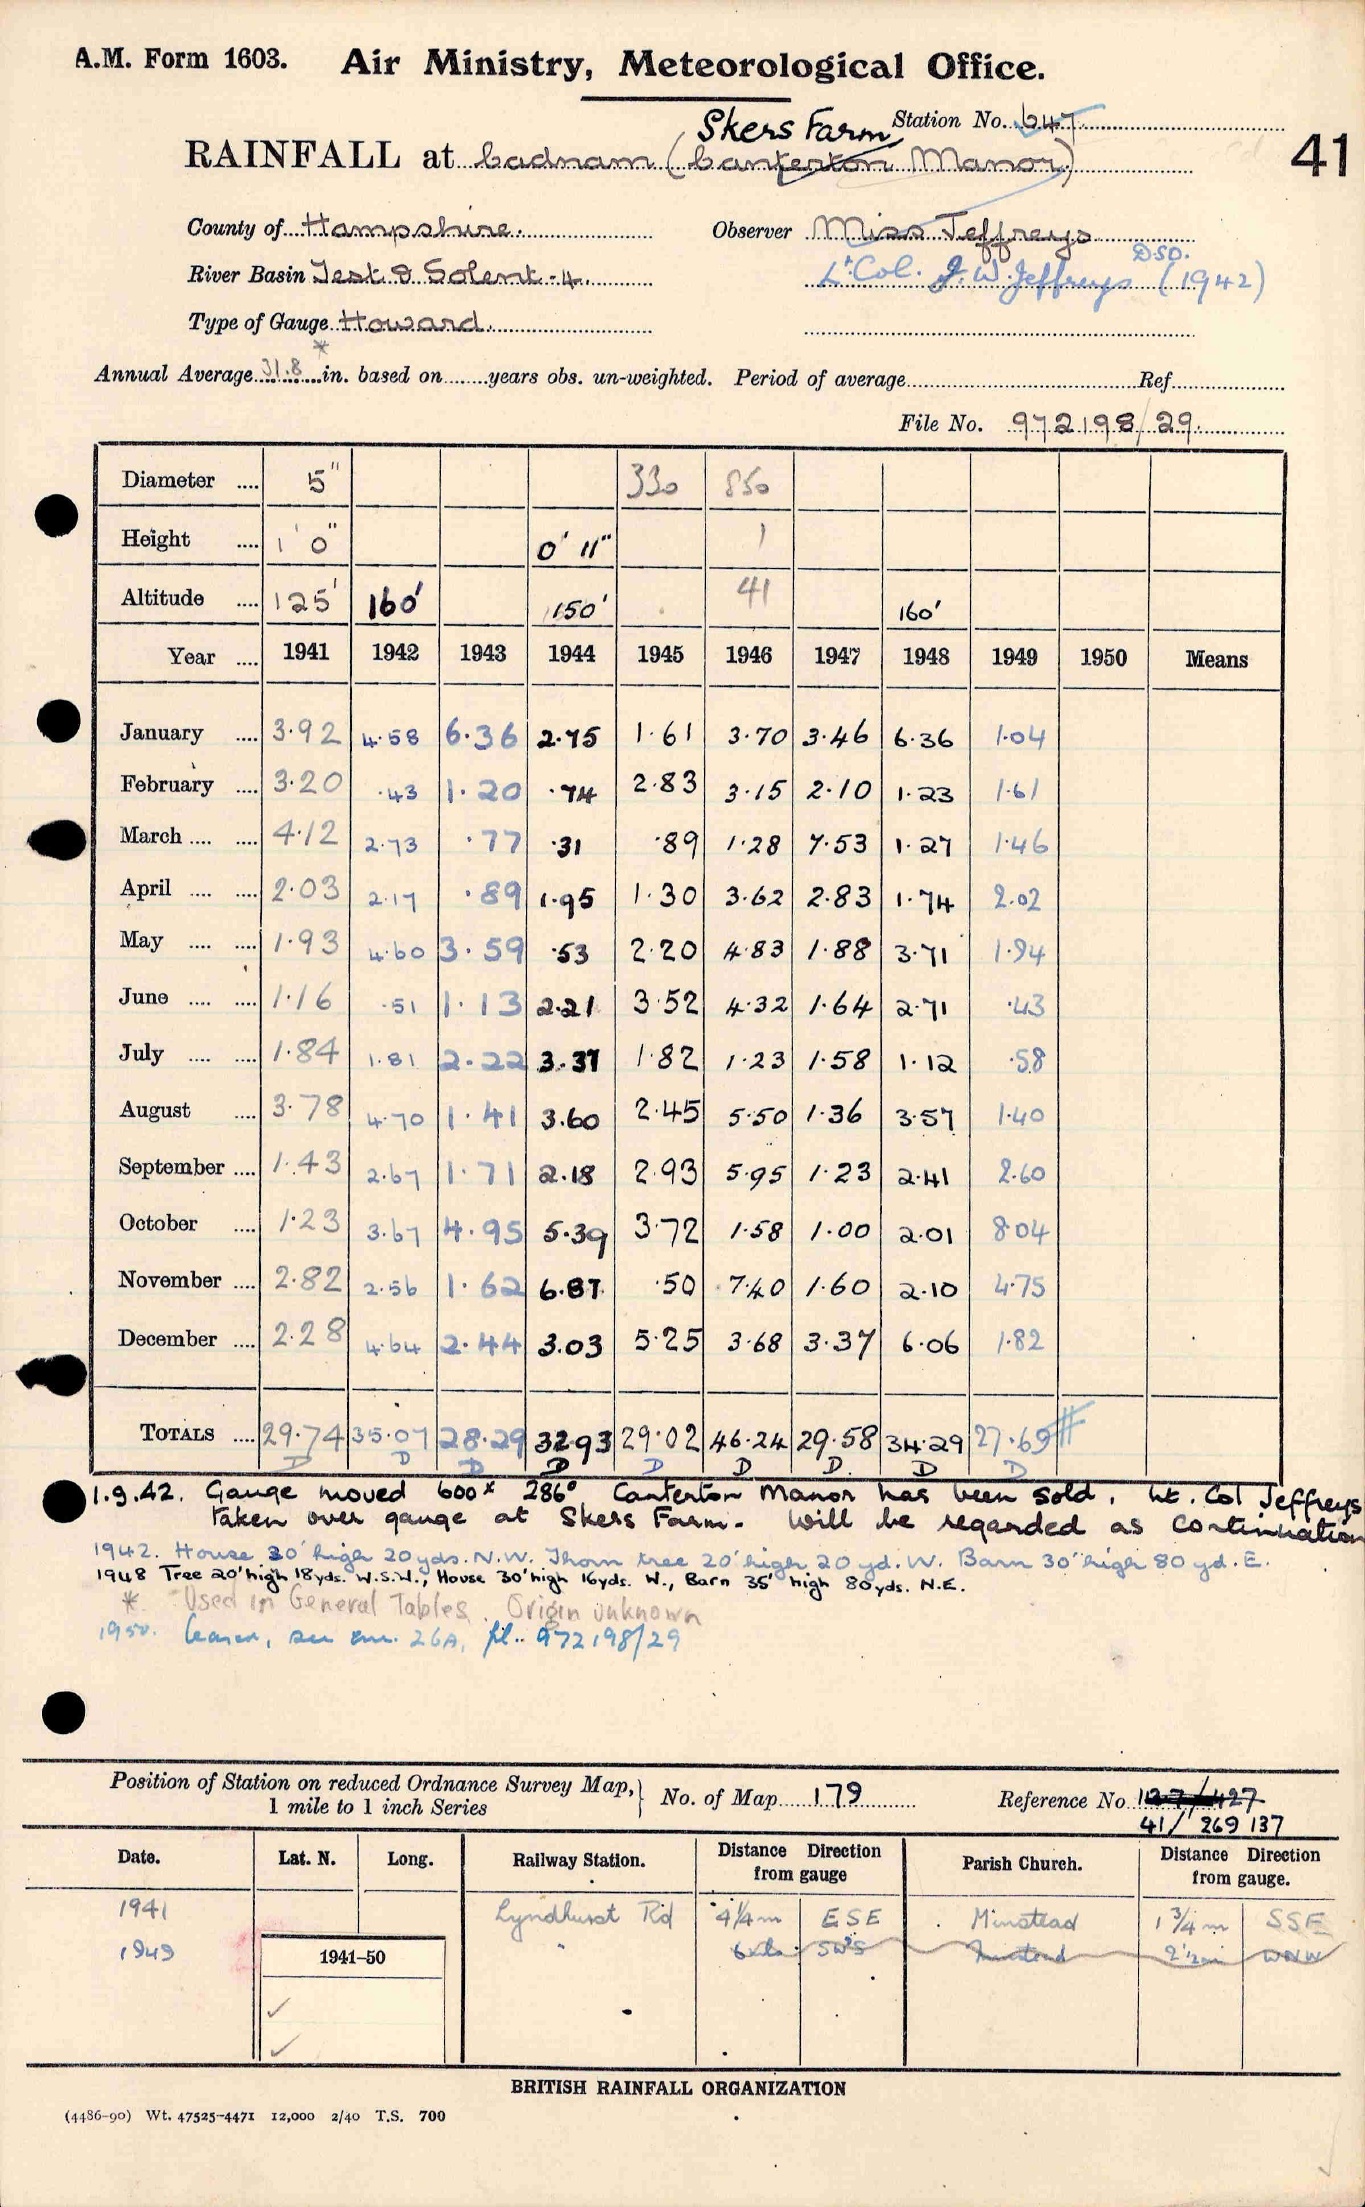 A.M. Form 1603. Air Ministry, Meteorological Office.
Skers Farm Station No. 647
41
RAINFALL at Cadnam (Canterton Manor)
County of Hampshire. Observer Miss Jeffreys
River Basin Test & Solent - 4. Lt. Col. J. W. Jeffreys D.S.O. (1942)
Type of Gauge Howard.
*
Annual Average 31.8 in. based on years obs. un-weighted. Period of average Ref
File No. 972198/29.
Diameter .... 5" 330 850
Height .... 1' 0" 0' 11" 1
Altitude .... 125' 160' 150' 41 160'
Year .... 1941 1942 1943 1944 1945 1946 1947 1948 1949 1950 Means
January .... 3.92 4.58 6.36 2.75 1.61 3.70 3.46 6.36 1.04
February .... 3.20 .43 1.20 .74 2.83 3.15 2.10 1.23 1.61
March .... .... 4.12 2.73 .77 .31 .89 1.28 7.53 1.27 1.46
April .... .... 2.03 2.17 .89 1.95 1.30 3.62 2.83 1.74 2.02
May .... .... 1.93 4.60 3.59 .53 2.20 4.83 1.88 3.71 1.94
June .... .... 1.16 .51 1.13 2.21 3.52 4.32 1.64 2.71 .43
July .... .... 1.84 1.81 2.22 3.37 1.82 1.23 1.58 1.12 .58
August .... 3.78 4.70 1.41 3.60 2.45 5.50 1.36 3.57 1.40
September .... 1.43 2.67 1.71 2.18 2.93 5.95 1.23 2.41 2.60
October .... 1.23 3.67 4.95 5.39 3.72 1.58 1.00 2.01 8.04
November .... 2.82 2.56 1.62 6.87 .50 7.40 1.60 2.10 4.75
December .... 2.28 4.64 2.44 3.03 5.25 3.68 3.37 6.06 1.82
TOTALS .... 29.74 35.07 28.29 32.93 29.02 46.24 29.58 34.29 27.69 #
D D D D D D D. D D
1.9.42. Gauge moved 600x 286° Canterton Manor has been sold. Lt. Col Jeffreys
taken over gauge at Skers Farm. Will be regarded as continuation
1942. House 30' high 20 yds. N.W. Thorn tree 20' high 20 yd. W. Barn 30' high 80 yd. E.
1948 Tree 20' high 18 yds. W.S.W., House 30' high 16 yds. W., Barn 35' high 80 yds. N.E.
* Used in General Tables. Origin unknown
1950. Ceased, see enc. 26A, fl. 972198/29
Position of Station on reduced Ordnance Survey Map,
1 mile to 1 inch Series
No. of Map 179 Reference No. 127/427
41/ 269 137
Date. Lat. N. Long. Railway Station. Distance Direction from gauge Parish Church. Distance Direction from gauge.
1941 Lyndhurst Rd 4¼ m ESE Minstead 1¾ m SSE
1949 " Minstead 2½ m WNW
1941–50
BRITISH RAINFALL ORGANIZATION
(4486-90) Wt. 47525-4471 12,000 2/40 T.S. 700